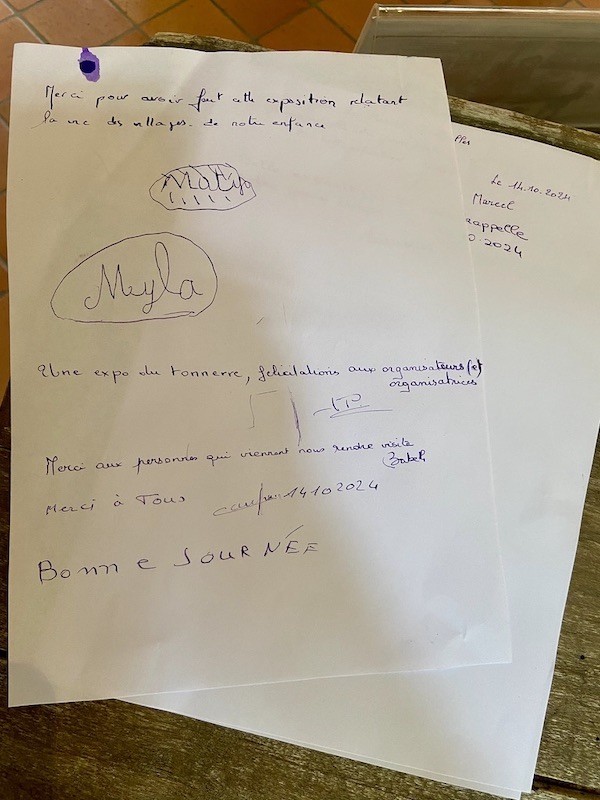 Merci pour avoir fait cette exposition relatant
la vie des villages de notre enfance
Matys
Meyla
Une expo du tonnerre, félicitations aux organisateurs (et)
organisatrices
Merci aux personnes qui viennent nous rendre visite
Merci à Tous 14 10 2024
Bonne JOURNÉE
lles
Le 14.10.2024
Marcel
rappelle
2024